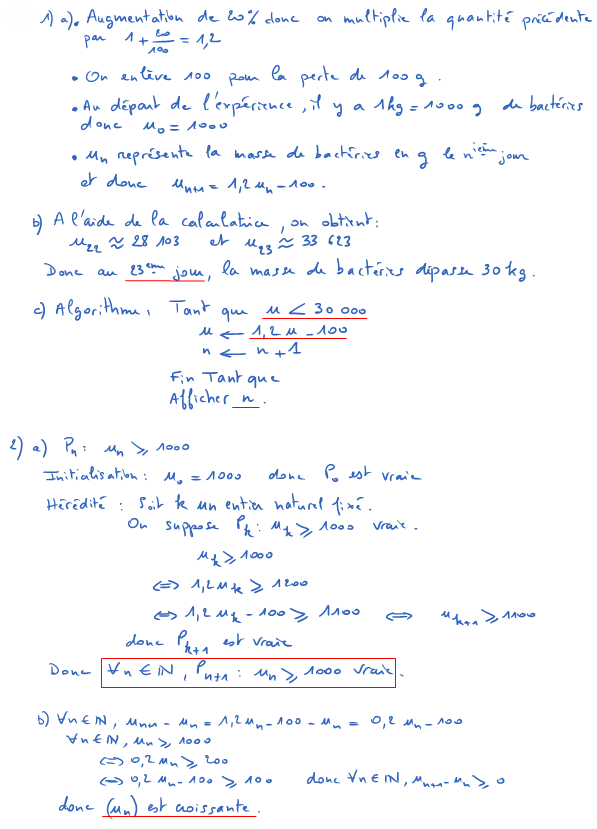 1) a) • Augmentation de 20% donc on multiplie la quantité précédente
par 1 + 20/100 = 1,2
• On enlève 100 pour la perte de 100 g.
• Au départ de l'expérience, il y a 1kg = 1000 g de bactéries
donc u₀ = 1000
• uₙ représente la masse de bactéries en g le nⁱᵉᵐᵉ jour
et donc uₙ₊₁ = 1,2 uₙ - 100.
b) A l'aide de la calculatrice, on obtient:
u₂₂ ≈ 28 103 et u₂₃ ≈ 33 623
Donc au 23ᵉᵐᵉ jour, la masse de bactéries dépasse 30 kg.
c) Algorithme: Tant que u < 30 000
u ← 1,2 u - 100
n ← n + 1
Fin Tant que
Afficher n.
2) a) Pₙ: uₙ ⩾ 1000
Initialisation: u₀ = 1000 donc P₀ est vraie
Hérédité: Soit k un entier naturel fixé.
On suppose Pₖ: uₖ ⩾ 1000 vraie.
uₖ ⩾ 1000
⇔ 1,2 uₖ ⩾ 1200
⇔ 1,2 uₖ - 100 ⩾ 1100 ⇔ uₖ₊₁ ⩾ 1100
donc Pₖ₊₁ est vraie
Donc ∀n ∈ ℕ, Pₙ₊₁: uₙ ⩾ 1000 vraie.
b) ∀n ∈ ℕ, uₙ₊₁ - uₙ = 1,2 uₙ - 100 - uₙ = 0,2 uₙ - 100
∀n ∈ ℕ, uₙ ⩾ 1000
⇔ 0,2 uₙ ⩾ 200
⇔ 0,2 uₙ - 100 ⩾ 100 donc ∀n ∈ ℕ, uₙ₊₁ - uₙ ⩾ 0
donc (uₙ) est croissante.